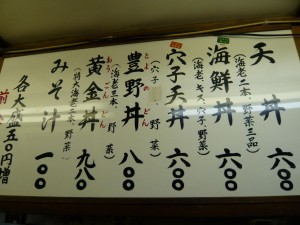 天丼
(海老二本、野菜三品)
六〇〇
海鮮丼
(海老、キス、穴子、野菜)
六〇〇
穴子天丼
(穴子、野菜)
六〇〇
豊野丼
とよのどん
(海老三本、野菜)
八〇〇
黄金丼
おうごんどん
(特大海老二本、野菜)
九八〇
みそ汁
一〇〇
各大盛五〇円増
前